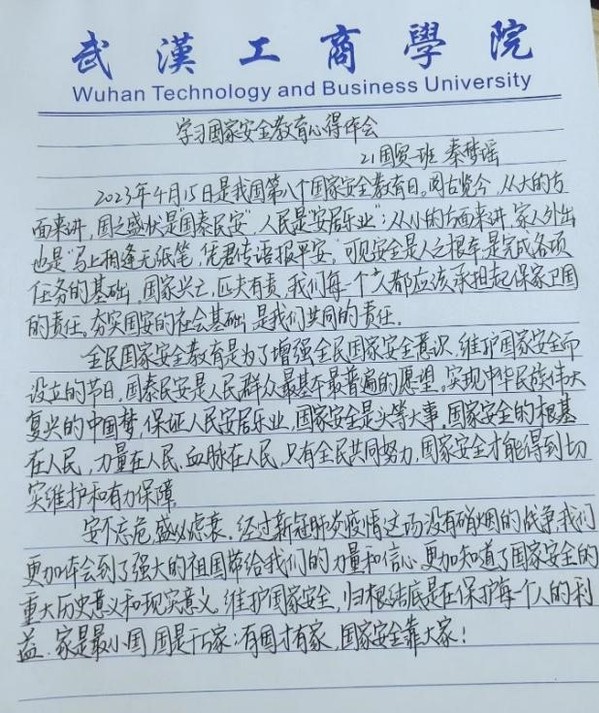 武漢工商學院
Wuhan Technology and Business University
学习国家安全教育心得体会
21国贸一班 秦梦瑶
2023年4月15日是我国第八个国家安全教育日。阅古览今,从大的方
面来讲,国之盛状是"国泰民安",人民是安居乐业";从小的方面来讲,家人外出
也是"马上相逢无纸笔,凭君传语报平安。"可见安全是人之根本是完成各项
任务的基础。国家兴亡,匹夫有责,我们每一个人都应该承担起保家卫国
的责任。夯实国安的社会基础是我们共同的责任。
全民国家安全教育是为了增强全民国家安全意识,维护国家安全而
设立的节日。国泰民安是人民群众最基本最普遍的愿望。实现中华民族伟大
复兴的中国梦,保证人民安居乐业,国家安全是头等大事。国家安全的根基
在人民,力量在人民,血脉在人民,只有全民共同努力,国家安全才能得到切
实维护和有力保障。
安不忘危,盛必虑衰。经过新冠肺炎疫情这场没有硝烟的战争我们
更加体会到了强大的祖国带给我们的力量和信心,更加知道了国家安全的
重大历史意义和现实意义。维护国家安全,归根结底是在保护每个人的利
益。家是最小国,国是千万家;有国才有家,国家安全靠大家!